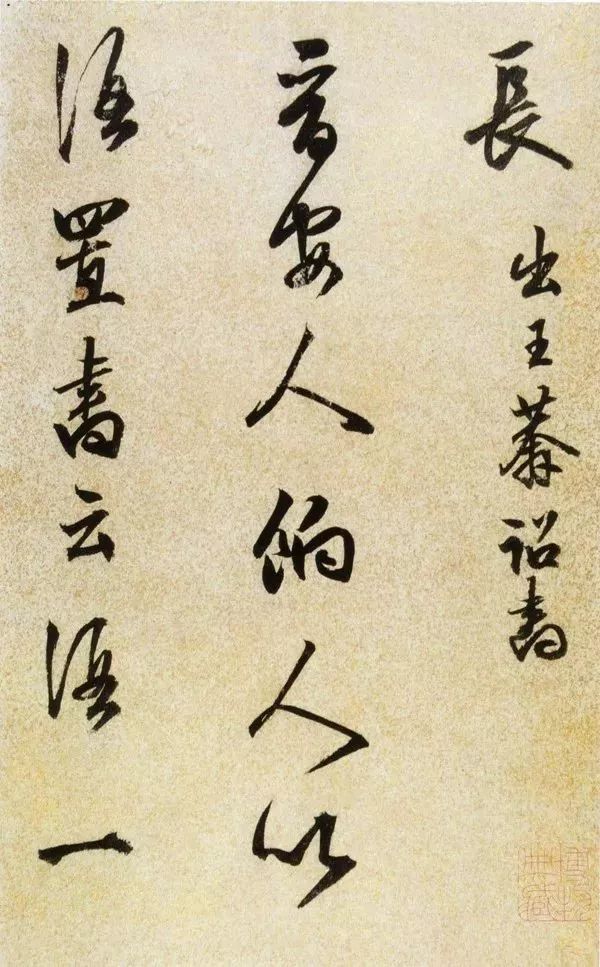 長 出王莽詔書
晉安人餉人以
置書云 一